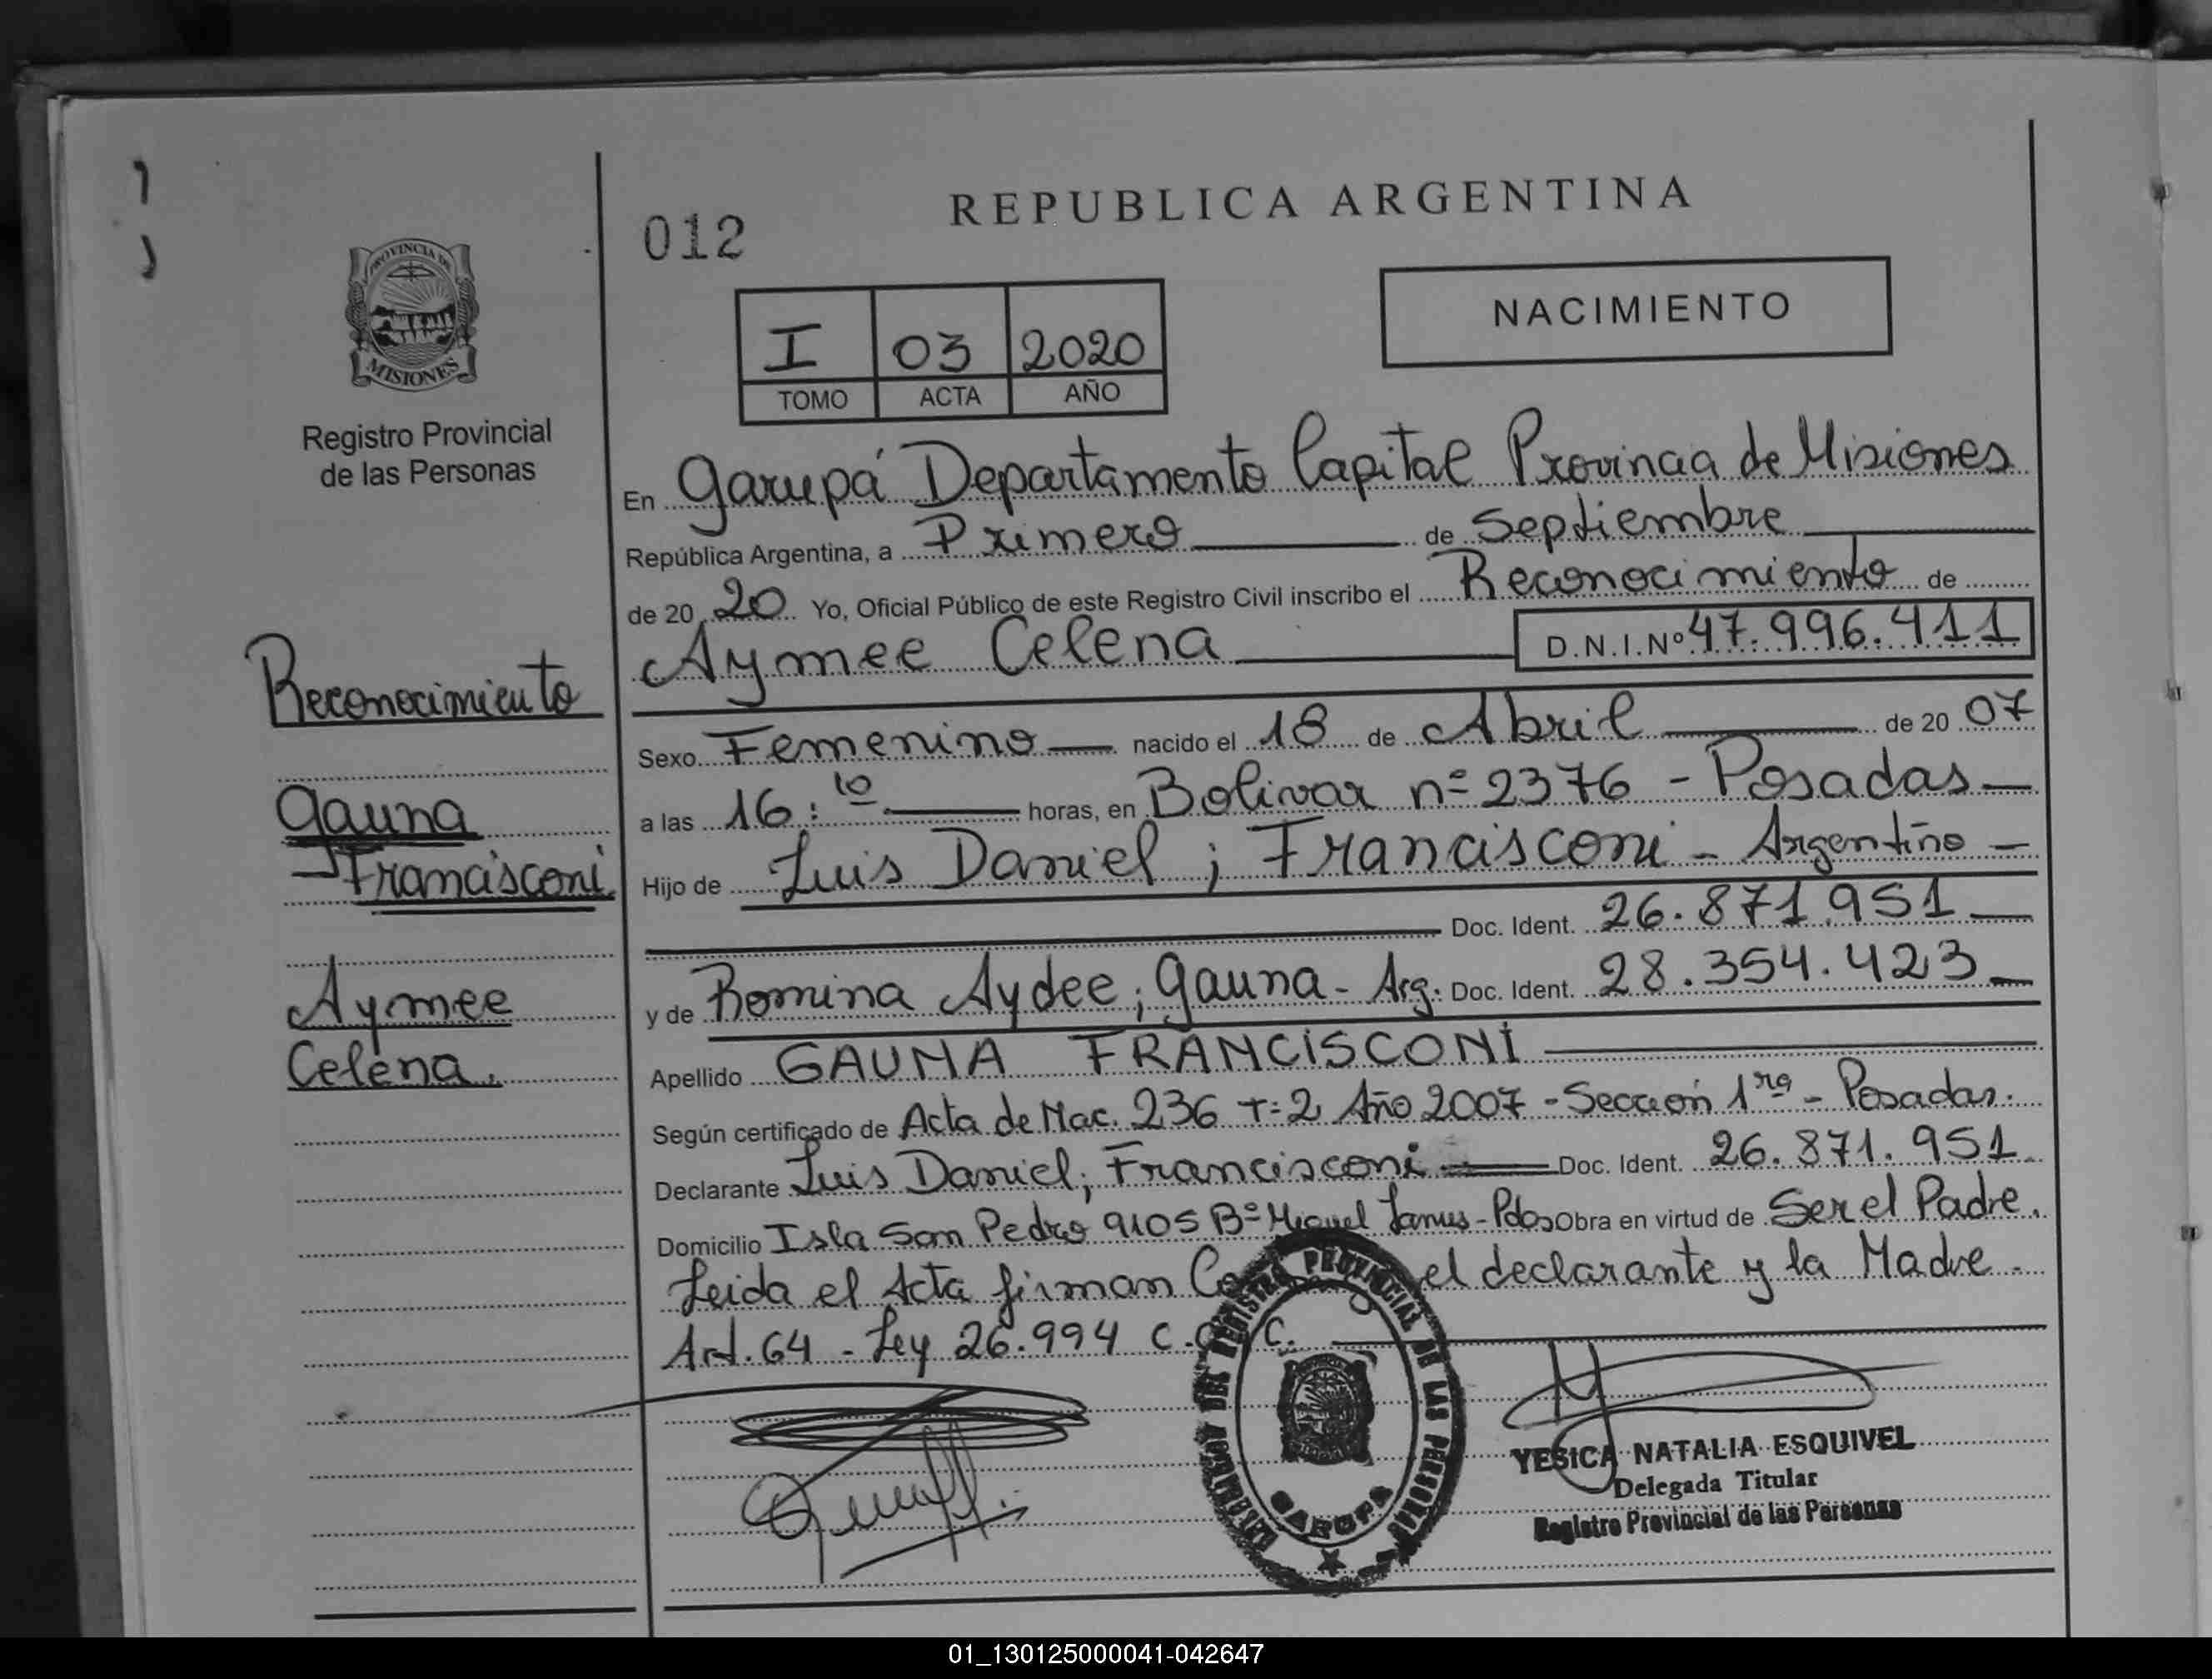 REPUBLICA ARGENTINA
012
NACIMIENTO
I 03 2020
TOMO ACTA AÑO
PROVINCIA DE
MISIONES
Registro Provincial
de las Personas
En Garupá Departamento Capital Provincia de Misiones
República Argentina, a Primero de Septiembre
de 20 20 Yo, Oficial Público de este Registro Civil inscribo el Reconocimiento de
Aymee Celena D.N.I.Nº 47.996.411
Sexo Femenino nacido el 18 de Abril de 20 07
a las 16:10 horas, en Bolivar nº 2376 - Posadas
Hijo de Luis Daniel ; Francisconi - Argentino
Doc. Ident. 26.871.951
y de Romina Aydee ; Gauna - Arg. Doc. Ident. 28.354.423
Apellido GAUNA FRANCISCONI
Según certificado de Acta de Nac. 236 T=2 Año 2007 - Sección 1ra - Posadas.
Declarante Luis Daniel ; Francisconi Doc. Ident. 26.871.951
Domicilio Isla San Pedro 9105 Bº Miguel Lanus - Pdas Obra en virtud de Ser el Padre.
Leida el Acta firman el declarante y la Madre.
Art. 64 - Ley 26.994 C.C. C.
Reconocimiento
Gauna
Francisconi
Aymee
Celena.
REGISTRO PROVINCIAL DE LAS PERSONAS
GARUPA
YESICA NATALIA ESQUIVEL
Delegada Titular
Registro Provincial de las Personas
01_130125000041-042647